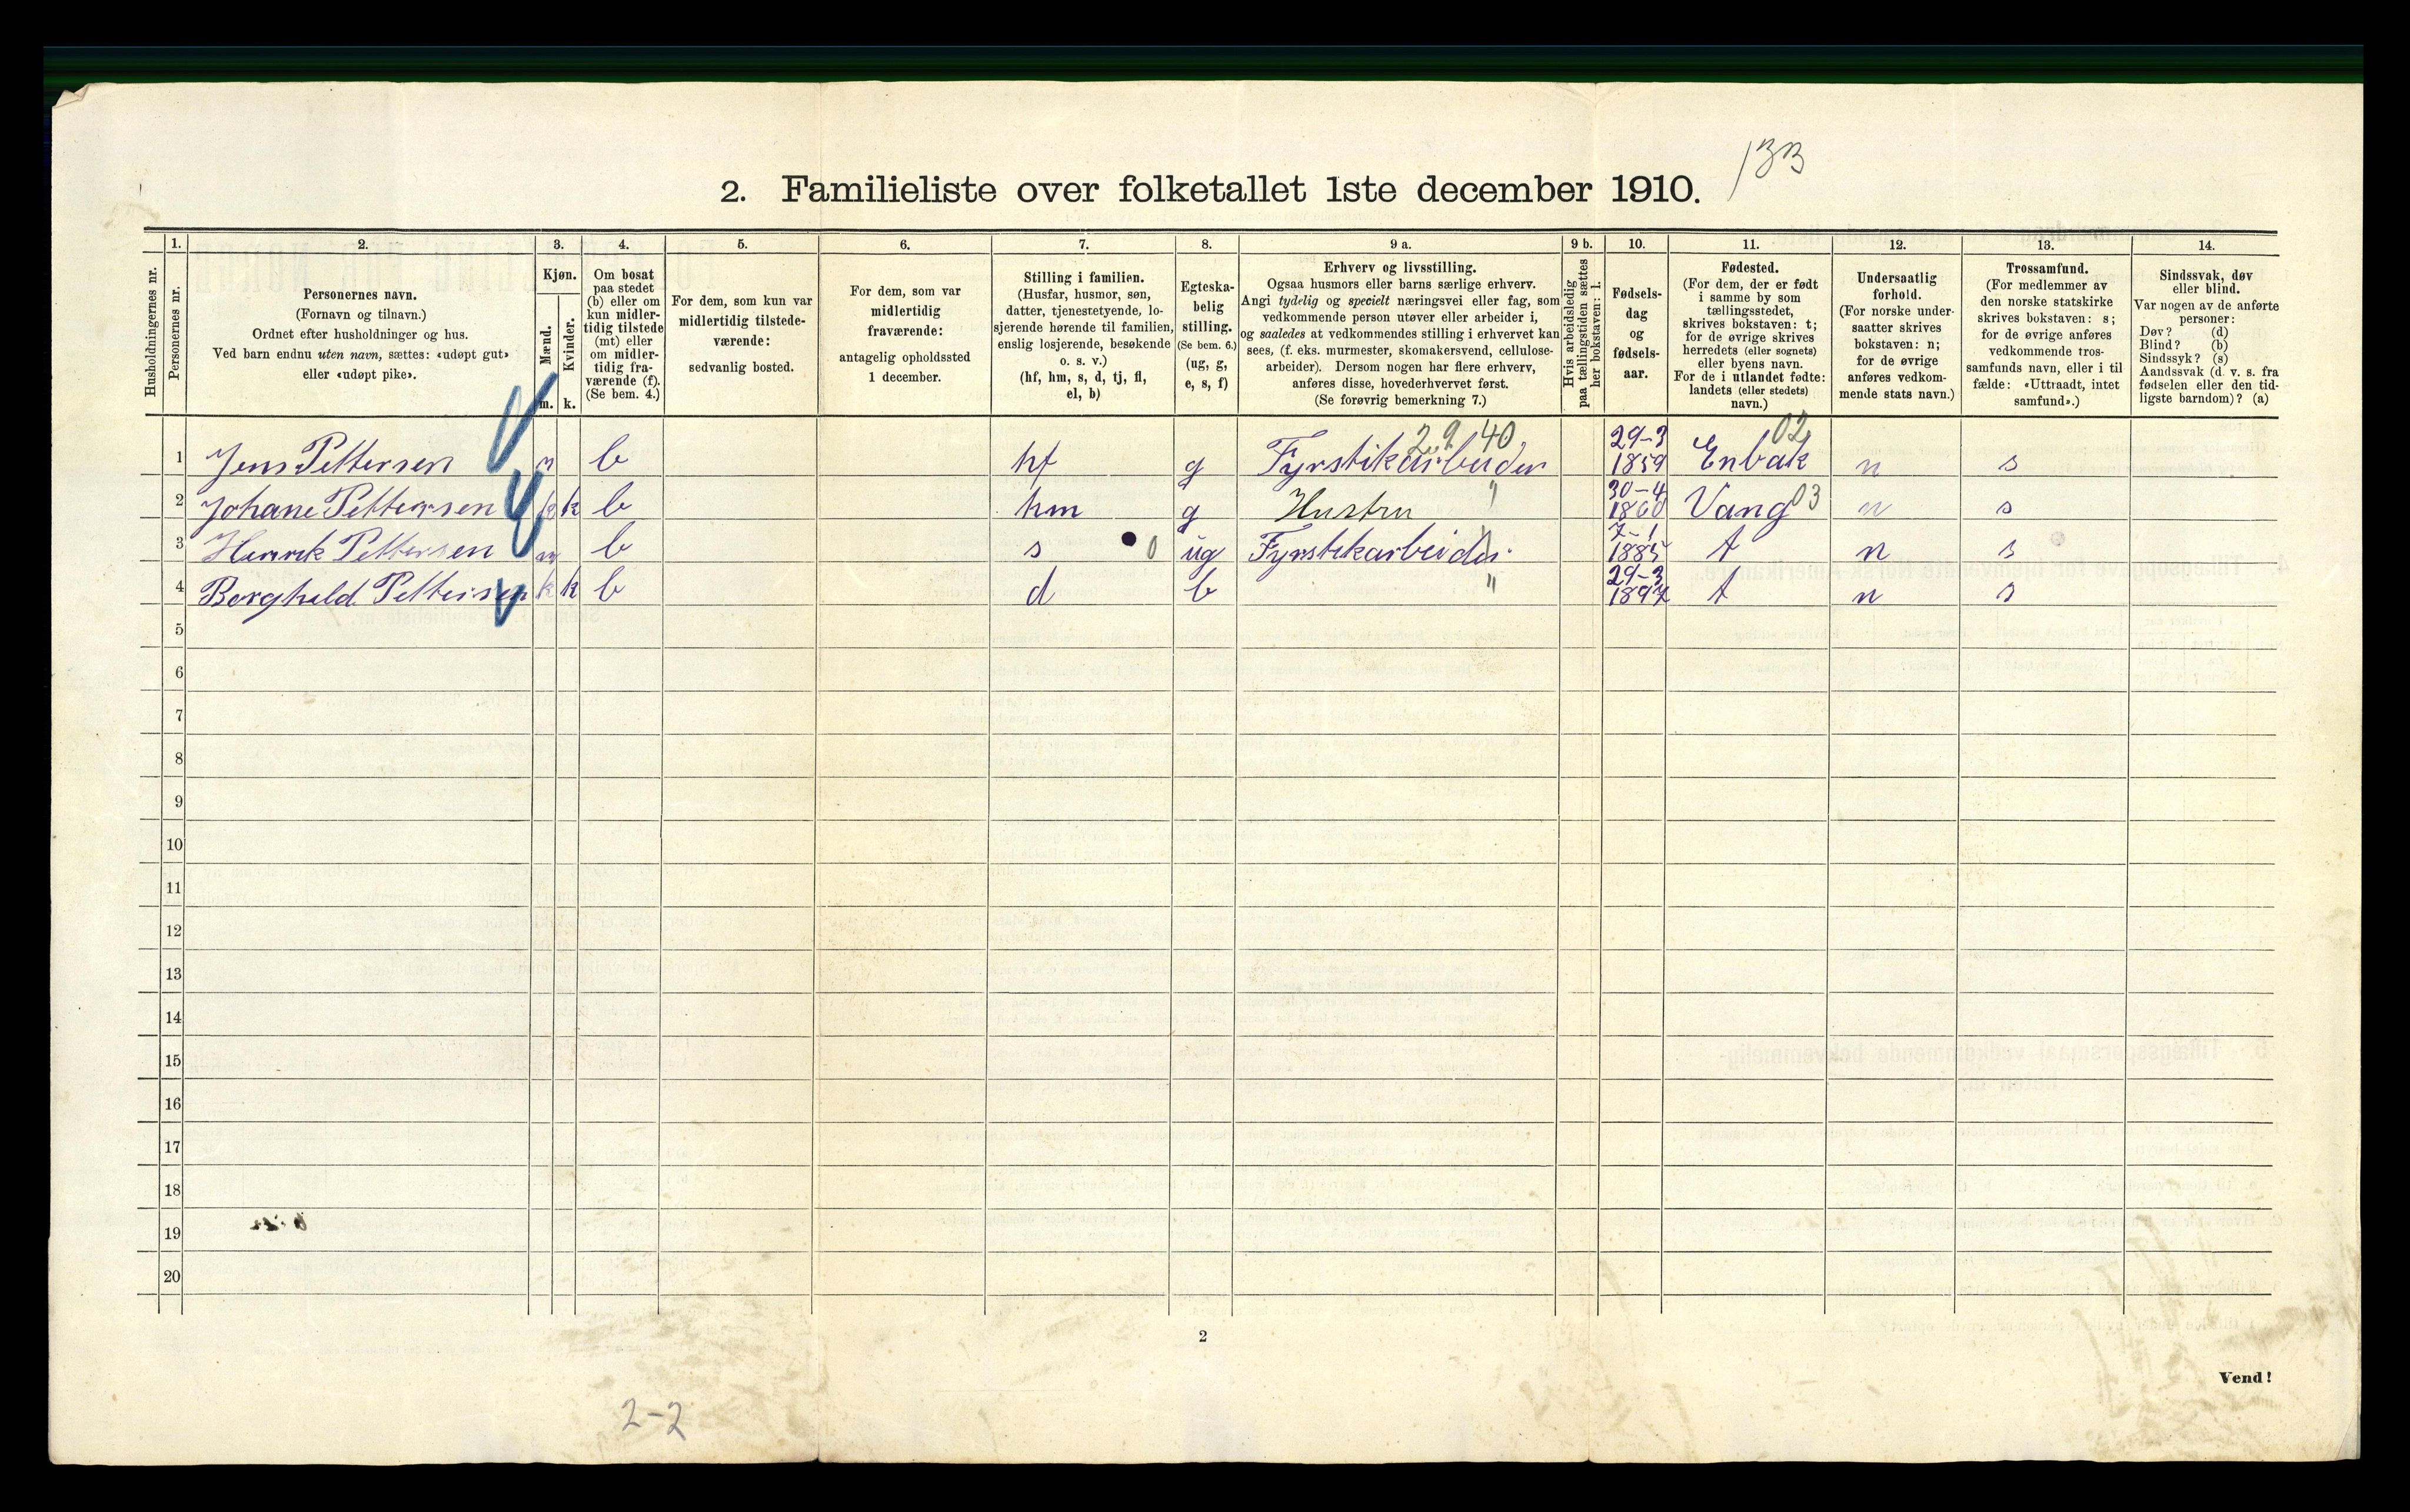 133
2. Familieliste over folketallet 1ste december 1910.
Husholdningernes nr.
1. Personernes nr.
2. Personernes navn. (Fornavn og tilnavn.) Ordnet efter husholdninger og hus. Ved barn endnu uten navn, sættes: «udøpt gut» eller «udøpt pike».
3. Kjøn. Mænd. m. Kvinder. k.
4. Om bosat paa stedet (b) eller om kun midler-tidig tilstede (mt) eller om midler-tidig fra-værende (f). (Se bem. 4.)
5. For dem, som kun var midlertidig tilstede-værende: sedvanlig bosted.
6. For dem, som var midlertidig fraværende: antagelig opholdssted 1 december.
7. Stilling i familien. (Husfar, husmor, søn, datter, tjenestetyende, lo-sjerende hørende til familien, enslig losjerende, besøkende o. s. v.) (hf, hm, s, d, tj, fl, el, b)
8. Egteska-belig stilling. (Se bem. 6.) (ug, g, e, s, f)
9 a. Erhverv og livsstilling. Ogsaa husmors eller barns særlige erhverv. Angi tydelig og specielt næringsvei eller fag, som vedkommende person utøver eller arbeider i, og saaledes at vedkommendes stilling i erhvervet kan sees, (f. eks. murmester, skomakersvend, cellulose-arbeider). Dersom nogen har flere erhverv, anføres disse, hovederhvervet først. (Se forøvrig bemerkning 7.)
9 b. Hvis arbeidsledig paa tællingstiden sættes her bokstaven: l.
10. Fødsels-dag og fødsels-aar.
11. Fødested. (For dem, der er født i samme by som tællingsstedet, skrives bokstaven: t; for de øvrige skrives herredets (eller sognets) eller byens navn. For de i utlandet fødte: landets (eller stedets) navn.)
12. Undersaatlig forhold. (For norske under-saatter skrives bokstaven: n; for de øvrige anføres vedkom-mende stats navn.)
13. Trossamfund. (For medlemmer av den norske statskirke skrives bokstaven: s; for de øvrige anføres vedkommende tros-samfunds navn, eller i til-fælde: «Uttraadt, intet samfund».)
14. Sindssvak, døv eller blind. Var nogen av de anførte personer: Døv? (d) Blind? (b) Sindssyk? (s) Aandssvak (d. v. s. fra fødselen eller den tid-ligste barndom)? (a)
1 Jens Pettersen m b hf g Fyrstikarbeider 29-3 1859 Enbak 02 n s
2 Johane Pettersen k k b hm g Hustru " 30-4 1860 Vang 03 n s
3 Henrik Pettersen m b s 0 ug Fyrstikarbeider 7-1 1885 t n s
4 Borghild Pettersen k k b d b " 29-3 1897 t n s
5
6
7
8
9
10
11
12
13
14
15
16
17
18
19
20
2
Vend!
2-2